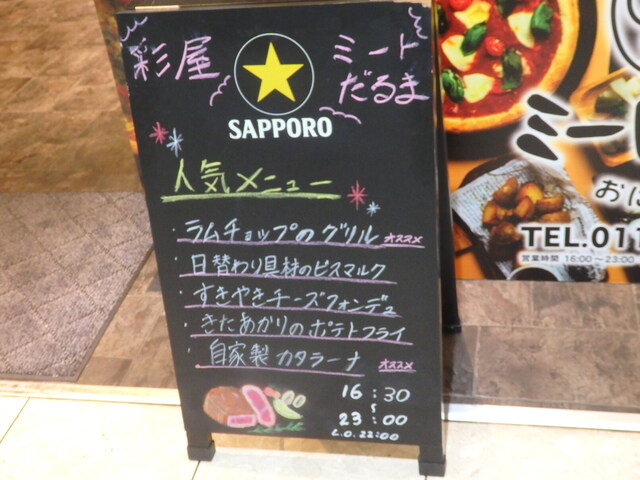 彩屋 ミート
だるま
SAPPORO
人気メニュー
・ラムチョップのグリル オススメ
・日替わり具材のビスマルク
・すきやきチーズフォンデュ
・きたあかりのポテトフライ
・自家製カタラーナ オススメ
16:30
~
23:00
L.O.22:00
ミー
TEL.011
営業時間 16:00~23:00